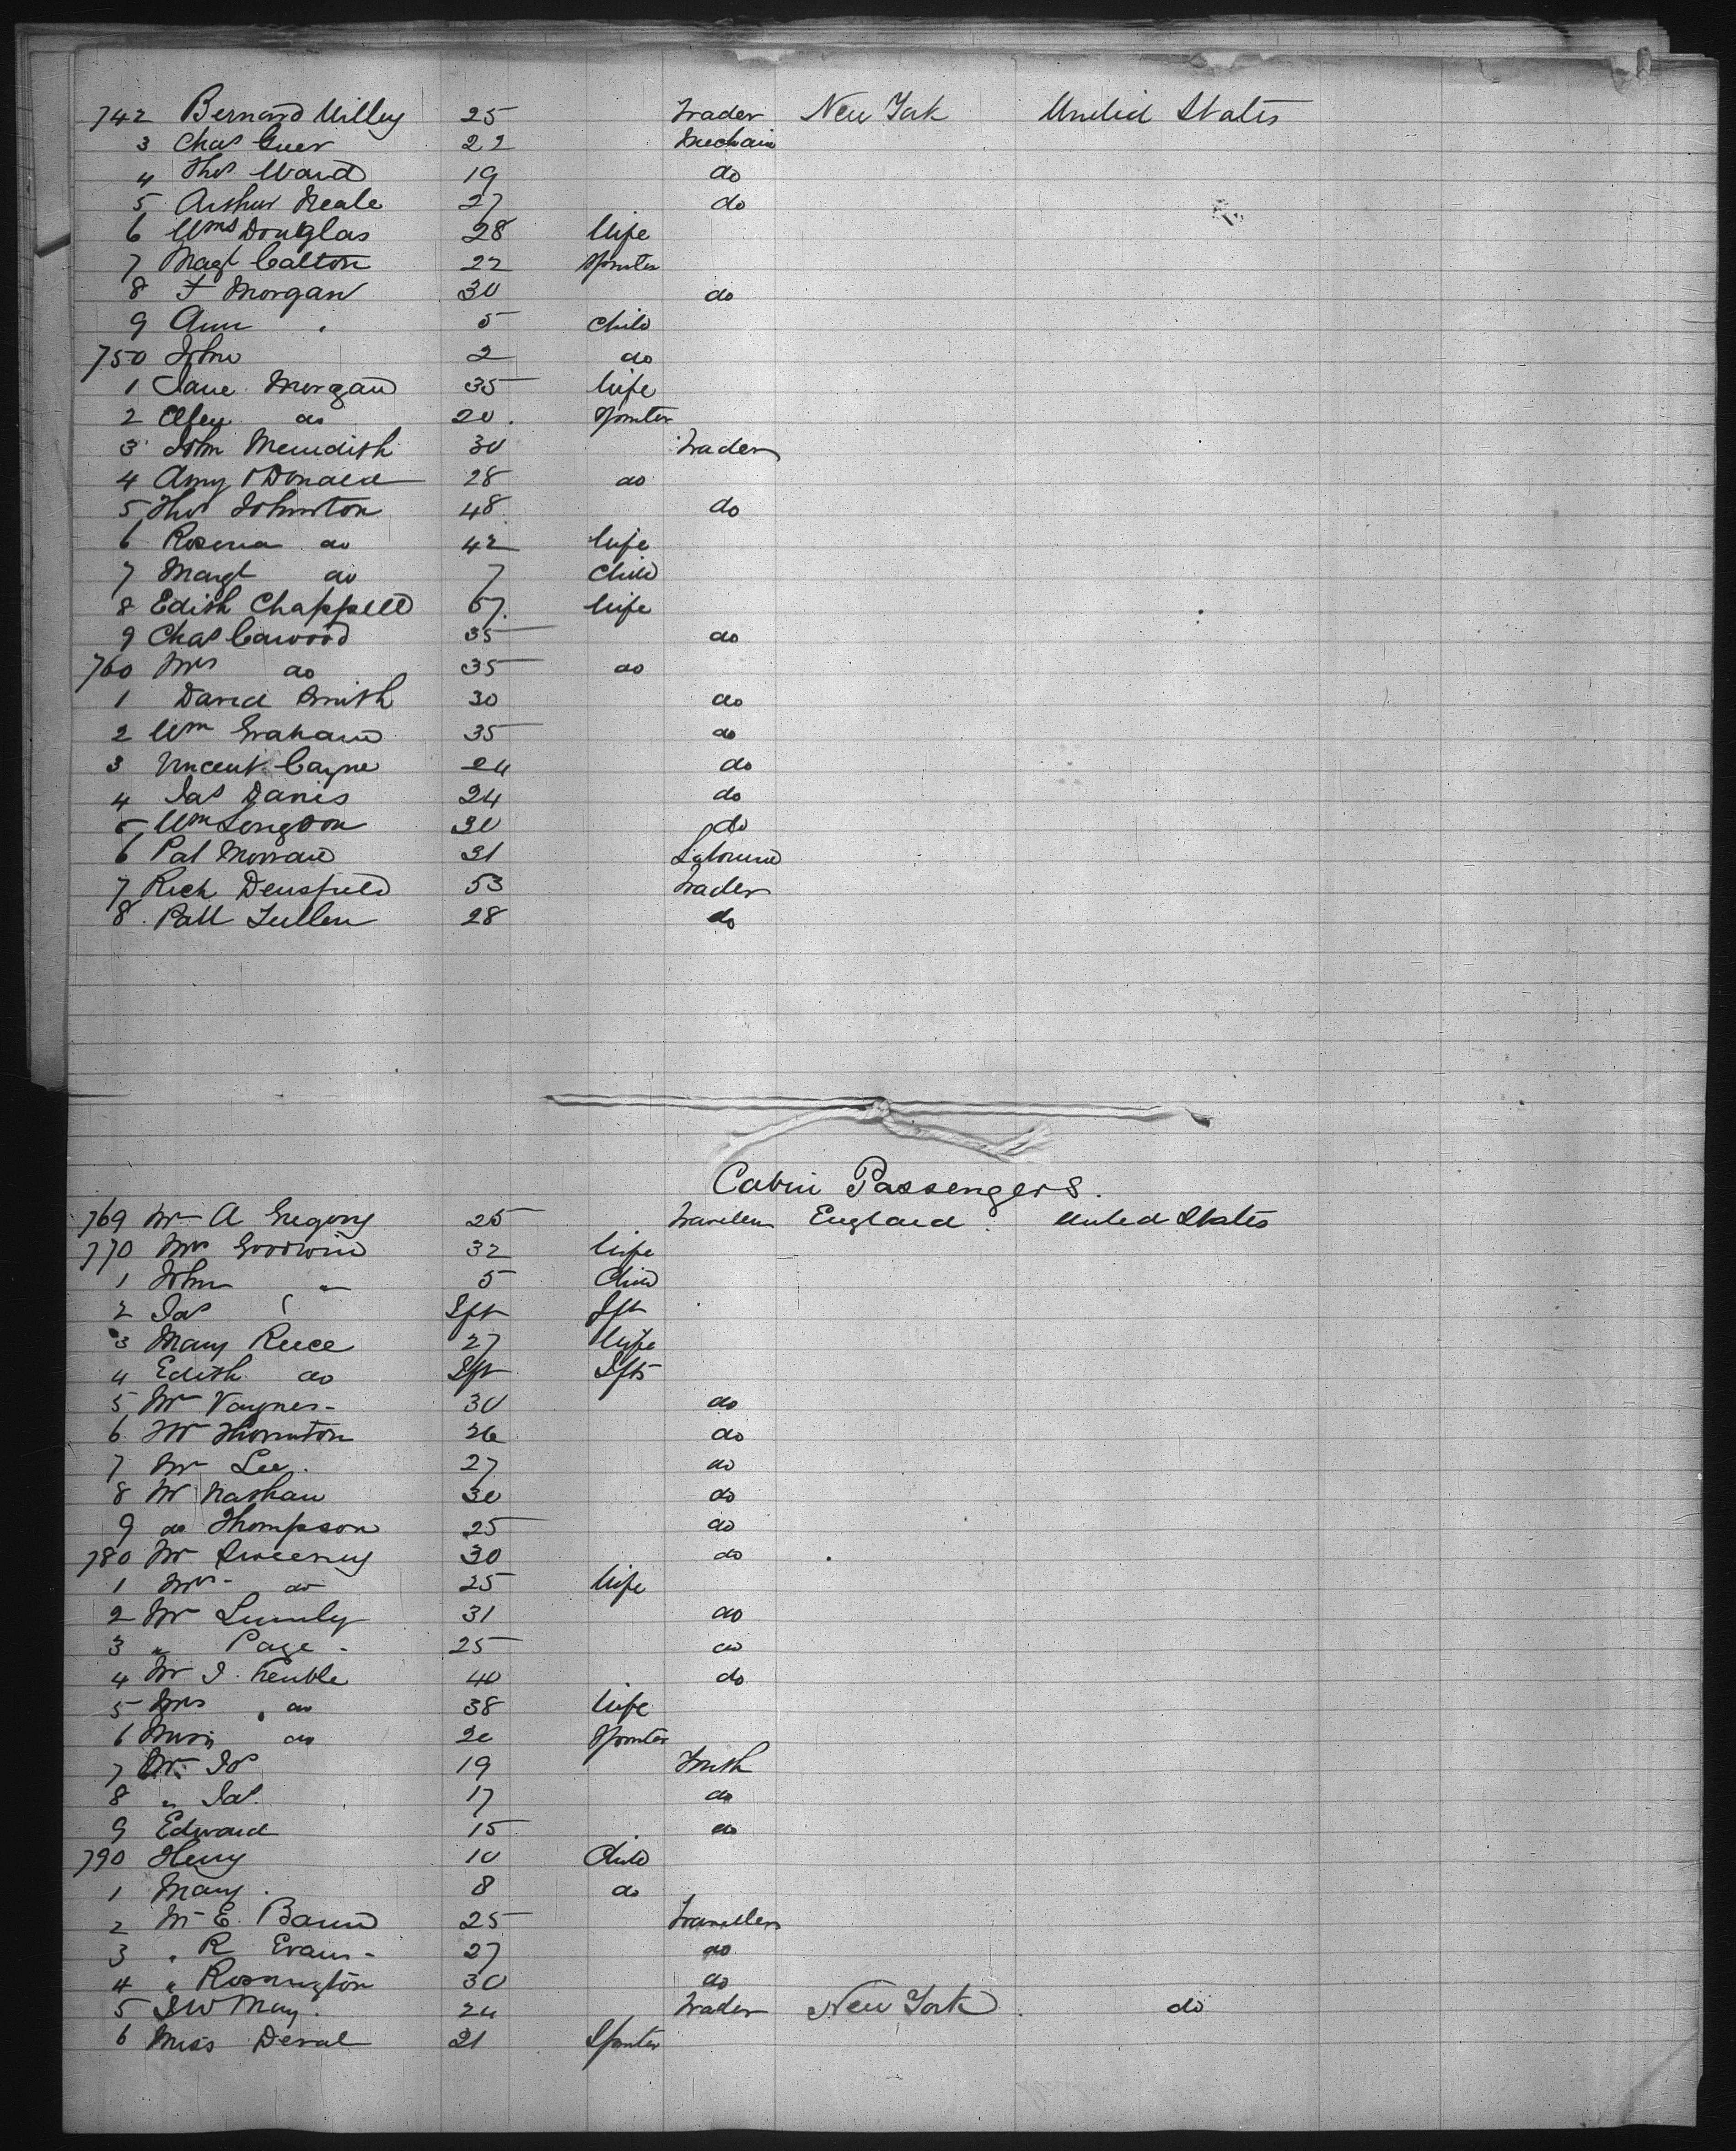 742 Bernard Willey 25 Trader New York United States
3 Chas Guer 22 Mechain
4 Thos Ward 19 do
5 Arthur Neale 27 do
6 Douglas 28 Wife
7 Magt Calton 22 Spinster
8 F Morgan 30 do
9 Ann 5 Child
750 John 2 do
1 Jane Morgan 35 Wife
2 Ellen do 20 Spinster
3 John Meredith 30 Trader
4 Amy ODonald 28 do
5 Thos Johnston 48 do
6 Rosena do 42 Wife
7 Margt do 7 Child
8 Edith Chappell 57 Wife
9 Chas Cawood 35 do
760 Mrs do 35 do
1 David Smith 30 do
2 Wm Graham 35 do
3 Vincent Cayne 24 do
4 Jas Davis 24 do
5 Wm Longdon 30 do
6 Pat Morran 21 Labourer
7 Rich Densfield 53 Trader
8 Patt Tullen 28 do
Cabin Passengers.
769 Mr A Gregory 25 Traveller England United States
770 Mrs Goodwin 32 Wife
1 John " 5 Child
2 Jas Ift Ift
3 Mary Reece 27 Wife
4 Edith do Ift Ift
5 Mr Vaynes 30 do
6 Mr Thornton 26 do
7 Mr Lee 27 do
8 Mr Nathan 30 do
9 do Thompson 25 do
780 Mr Sweeney 30 do
1 Mrs do 25 Wife
2 Mr Lumly 31 do
3 " Page 25 do
4 Mr J. Keuble 40 do
5 Mrs do 38 Wife
6 Miss do 20 Spinster
7 Mr Jos 19 Youth
8 " Jas. 17 do
9 Edward 15 do
790 Henry 10 Child
1 Mary 8 do
2 Mr E. 25 Travellers
3 " R Evans 27 do
4 " Rossington 30 do
5 J W May 24 Trader New York do
6 Miss Deval 21 Spinster